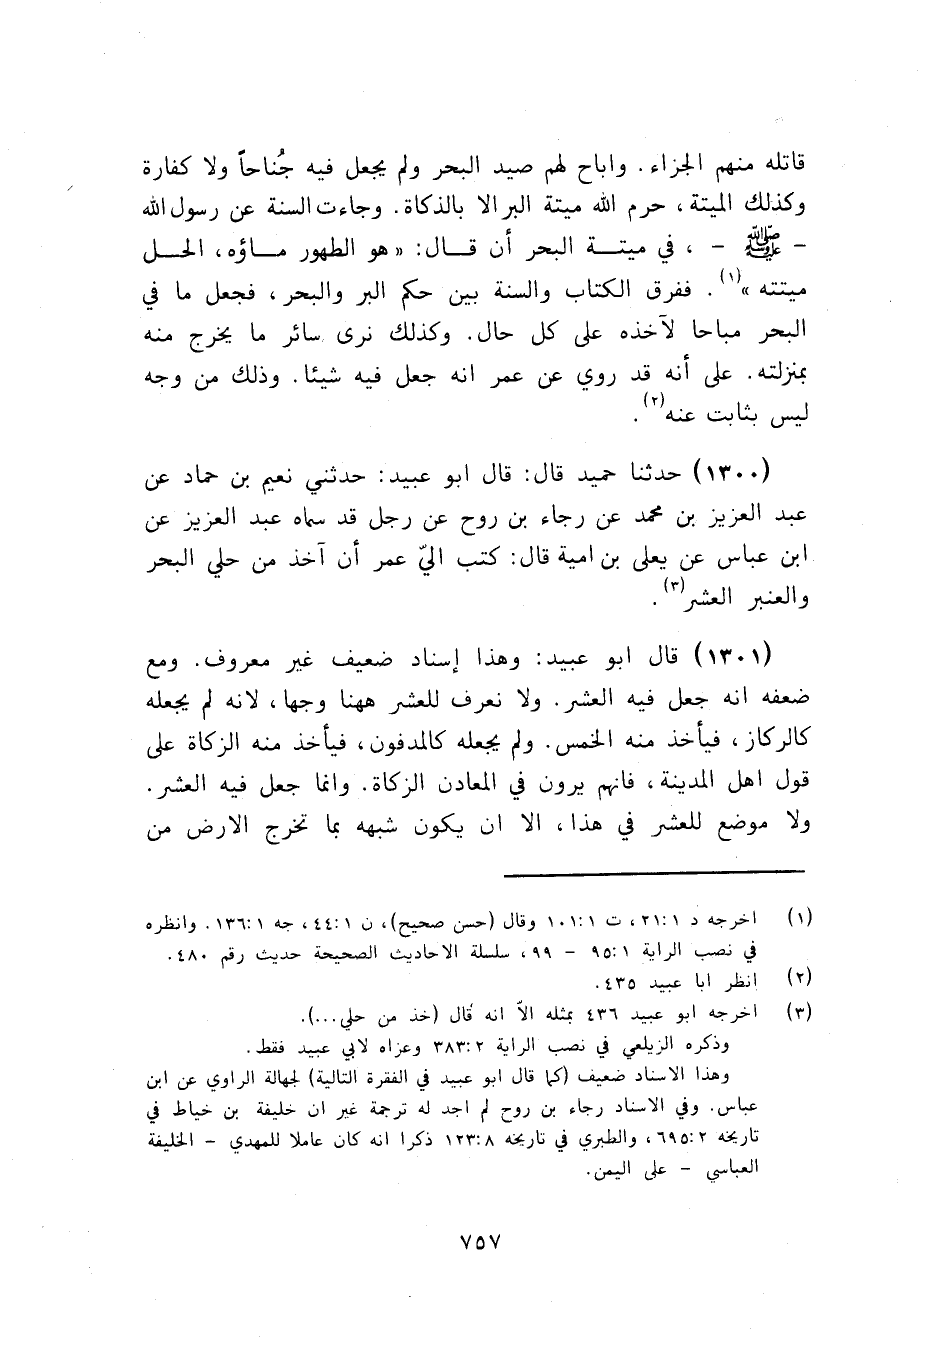 قاتله منهم الجزاء. واباح لهم صيد البحر ولم يجعل فيه جُناحاً ولا كفارة
وكذلك الميتة، حرم الله ميتة البر الا بالذكاة. وجاءت السنة عن رسول الله
- ﷺ - ، في ميتة البحر أن قال: « هو الطهور ماؤه، الحل
ميتته »(١). ففرق الكتاب والسنة بين حكم البر والبحر، فجعل ما في
البحر مباحا لآخذه على كل حال. وكذلك نرى سائر ما يخرج منه
بمنزلته. على أنه قد روي عن عمر انه جعل فيه شيئا. وذلك من وجه
ليس بثابت عنه(٢).
(١٣٠٠) حدثنا حميد قال: قال ابو عبيد: حدثني نعيم بن حماد عن
عبد العزيز بن محمد عن رجاء بن روح عن رجل قد سماه عبد العزيز عن
ابن عباس عن يعلى بن امية قال: كتب اليّ عمر أن آخذ من حلي البحر
والعنبر العشر(٣).
(١٣٠١) قال ابو عبيد: وهذا إسناد ضعيف غير معروف. ومع
ضعفه انه جعل فيه العشر. ولا نعرف للعشر ههنا وجها، لانه لم يجعله
كالركاز، فيأخذ منه الخمس. ولم يجعله كالمدفون، فيأخذ منه الزكاة على
قول اهل المدينة، فانهم يرون في المعادن الزكاة. وانما جعل فيه العشر.
ولا موضع للعشر في هذا، الا ان يكون شبهه بما تخرج الارض من
(١) اخرجه د ٢١:١، ت ١٠١:١ وقال (حسن صحيح)، ن ٤٤:١، جه ١٣٦:١. وانظره
في نصب الراية ٩٥:١ - ٩٩، سلسلة الاحاديث الصحيحة حديث رقم ٤٨٠.
(٢) انظر ابا عبيد ٤٣٥.
(٣) اخرجه ابو عبيد ٤٣٦ بمثله الاّ انه قال (خذ من حلي...).
وذكره الزيلعي في نصب الراية ٣٨٣:٢ وعزاه لابي عبيد فقط.
وهذا الاسناد ضعيف (كما قال ابو عبيد في الفقرة التالية) لجهالة الراوي عن ابن
عباس. وفي الاسناد رجاء بن روح لم اجد له ترجمة غير ان خليفة بن خياط في
تاريخه ٦٩٥:٢، والطبري في تاريخه ١٢٣:٨ ذكرا انه كان عاملا للمهدي - الخليفة
العباسي - على اليمن.
٧٥٧